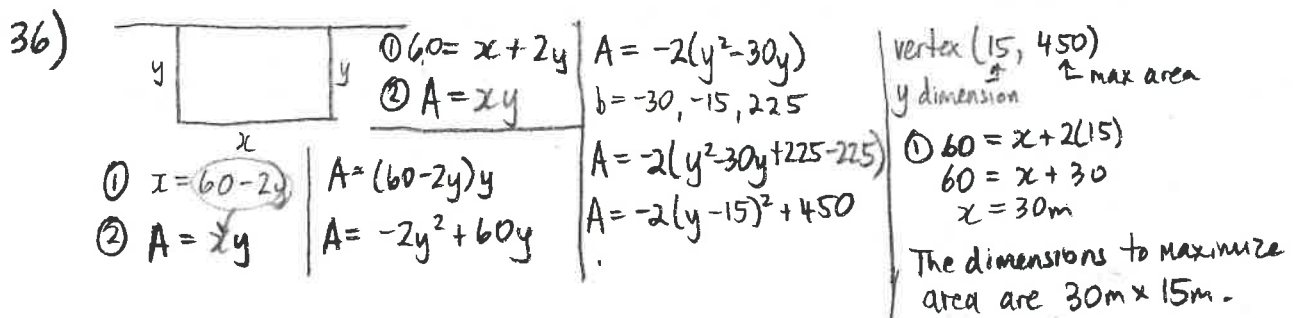 36)
y
y
x
① 60 = x + 2y
② A = xy
① x = 60 - 2y
② A = xy
A = (60-2y)y
A = -2y² + 60y
A = -2(y² - 30y)
b = -30, -15, 225
A = -2(y² - 30y + 225 - 225)
A = -2(y - 15)² + 450
vertex (15, 450)
↑ ↑ max area
y dimension
① 60 = x + 2(15)
60 = x + 30
x = 30m
The dimensions to maximize
area are 30m × 15m.